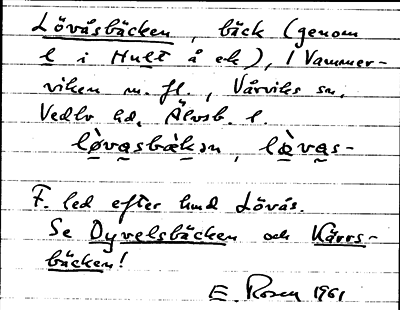 Lövåsbäcken, bäck (genom
l i Hult å ek), i Vammer-
viken m. fl., Vårviks sn,
Vedbo hd, Älvsb. l.
lòvasbàkən, lòvas-
F. led efter hmd Lövås.
Se Dyvelsbäcken och Kärrs-
bäcken!
E. Rosen 1961